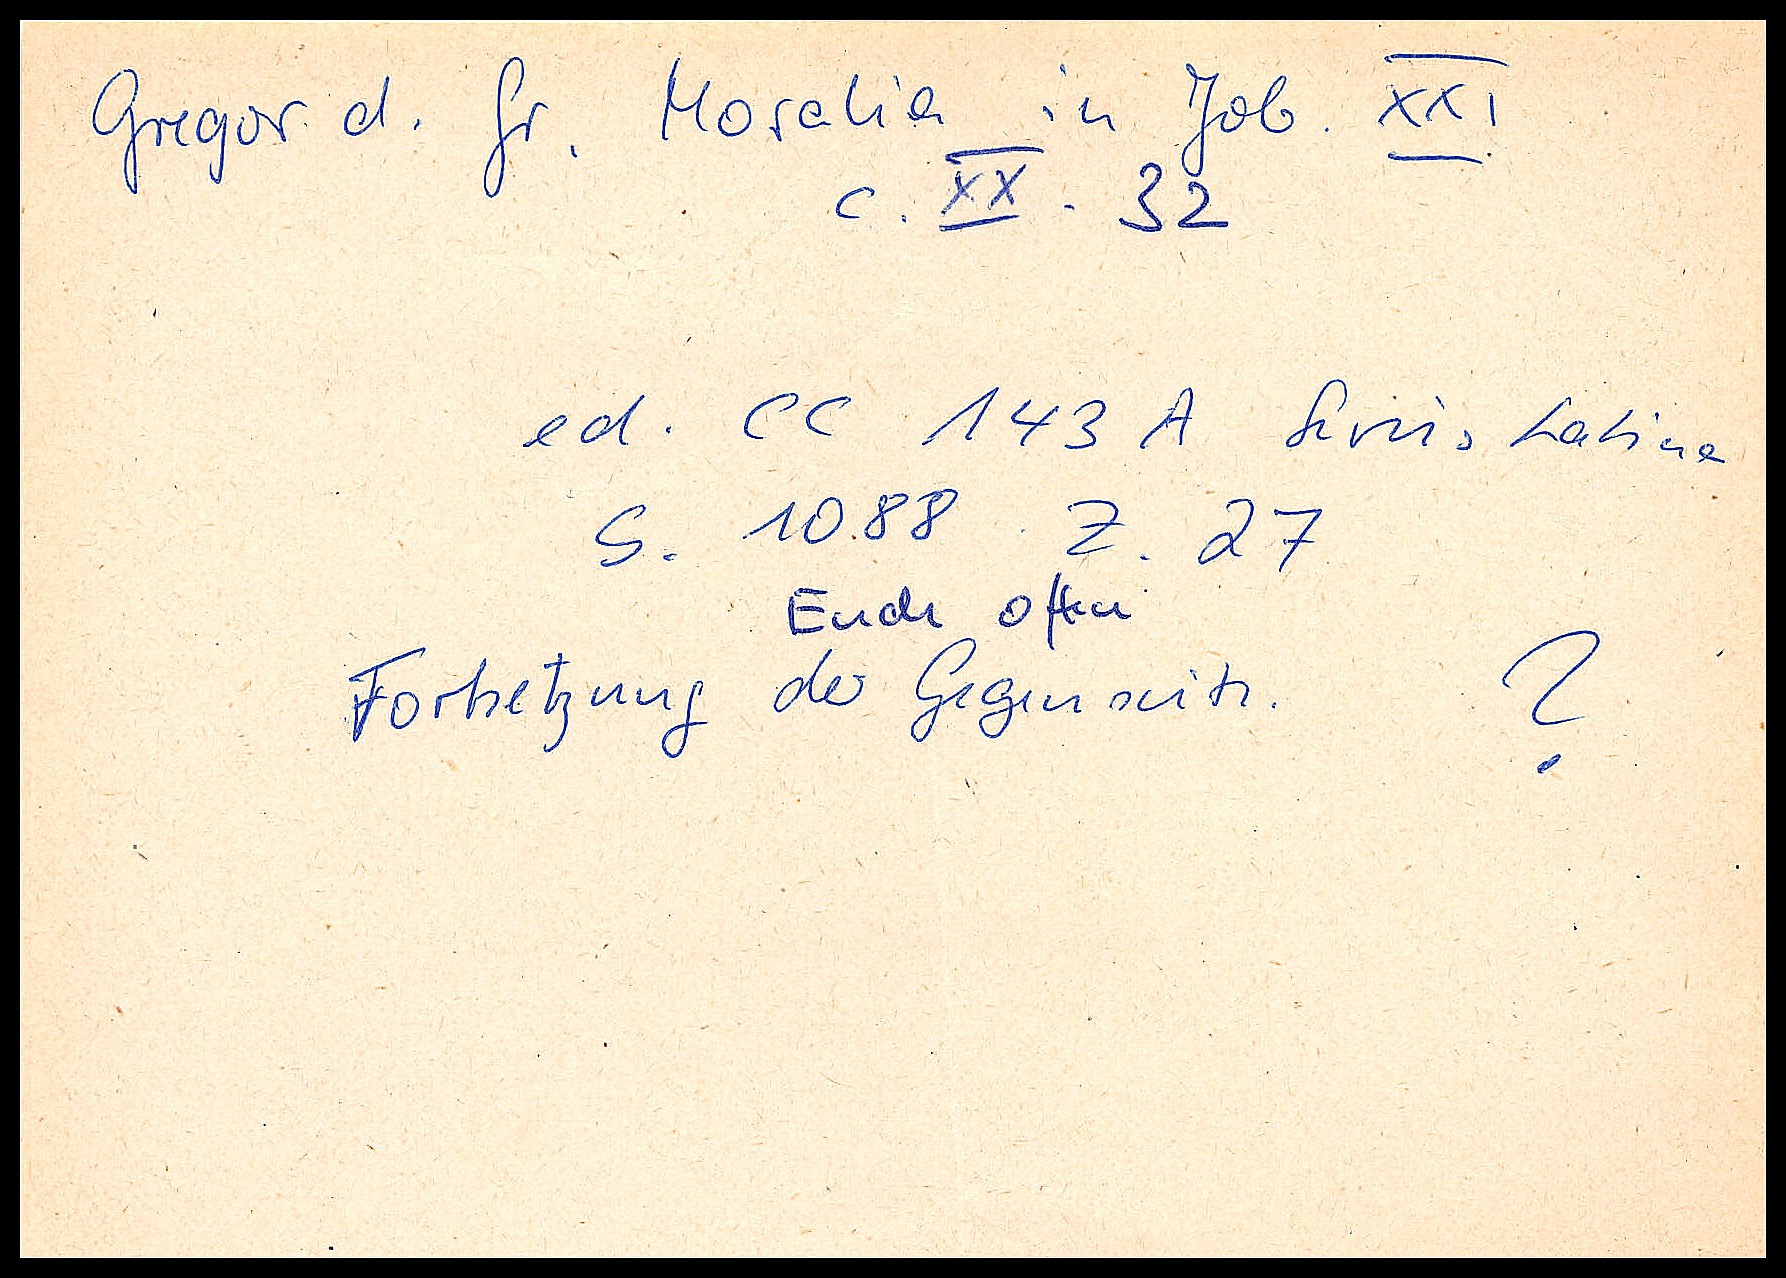 Gregor d. Gr. Moralia in Job. XXI
c. XX. 32
ed. CC 143 A Series Latina
S. 1088 Z. 27
Ende offen
Fortsetzung der Gegenseite. ?